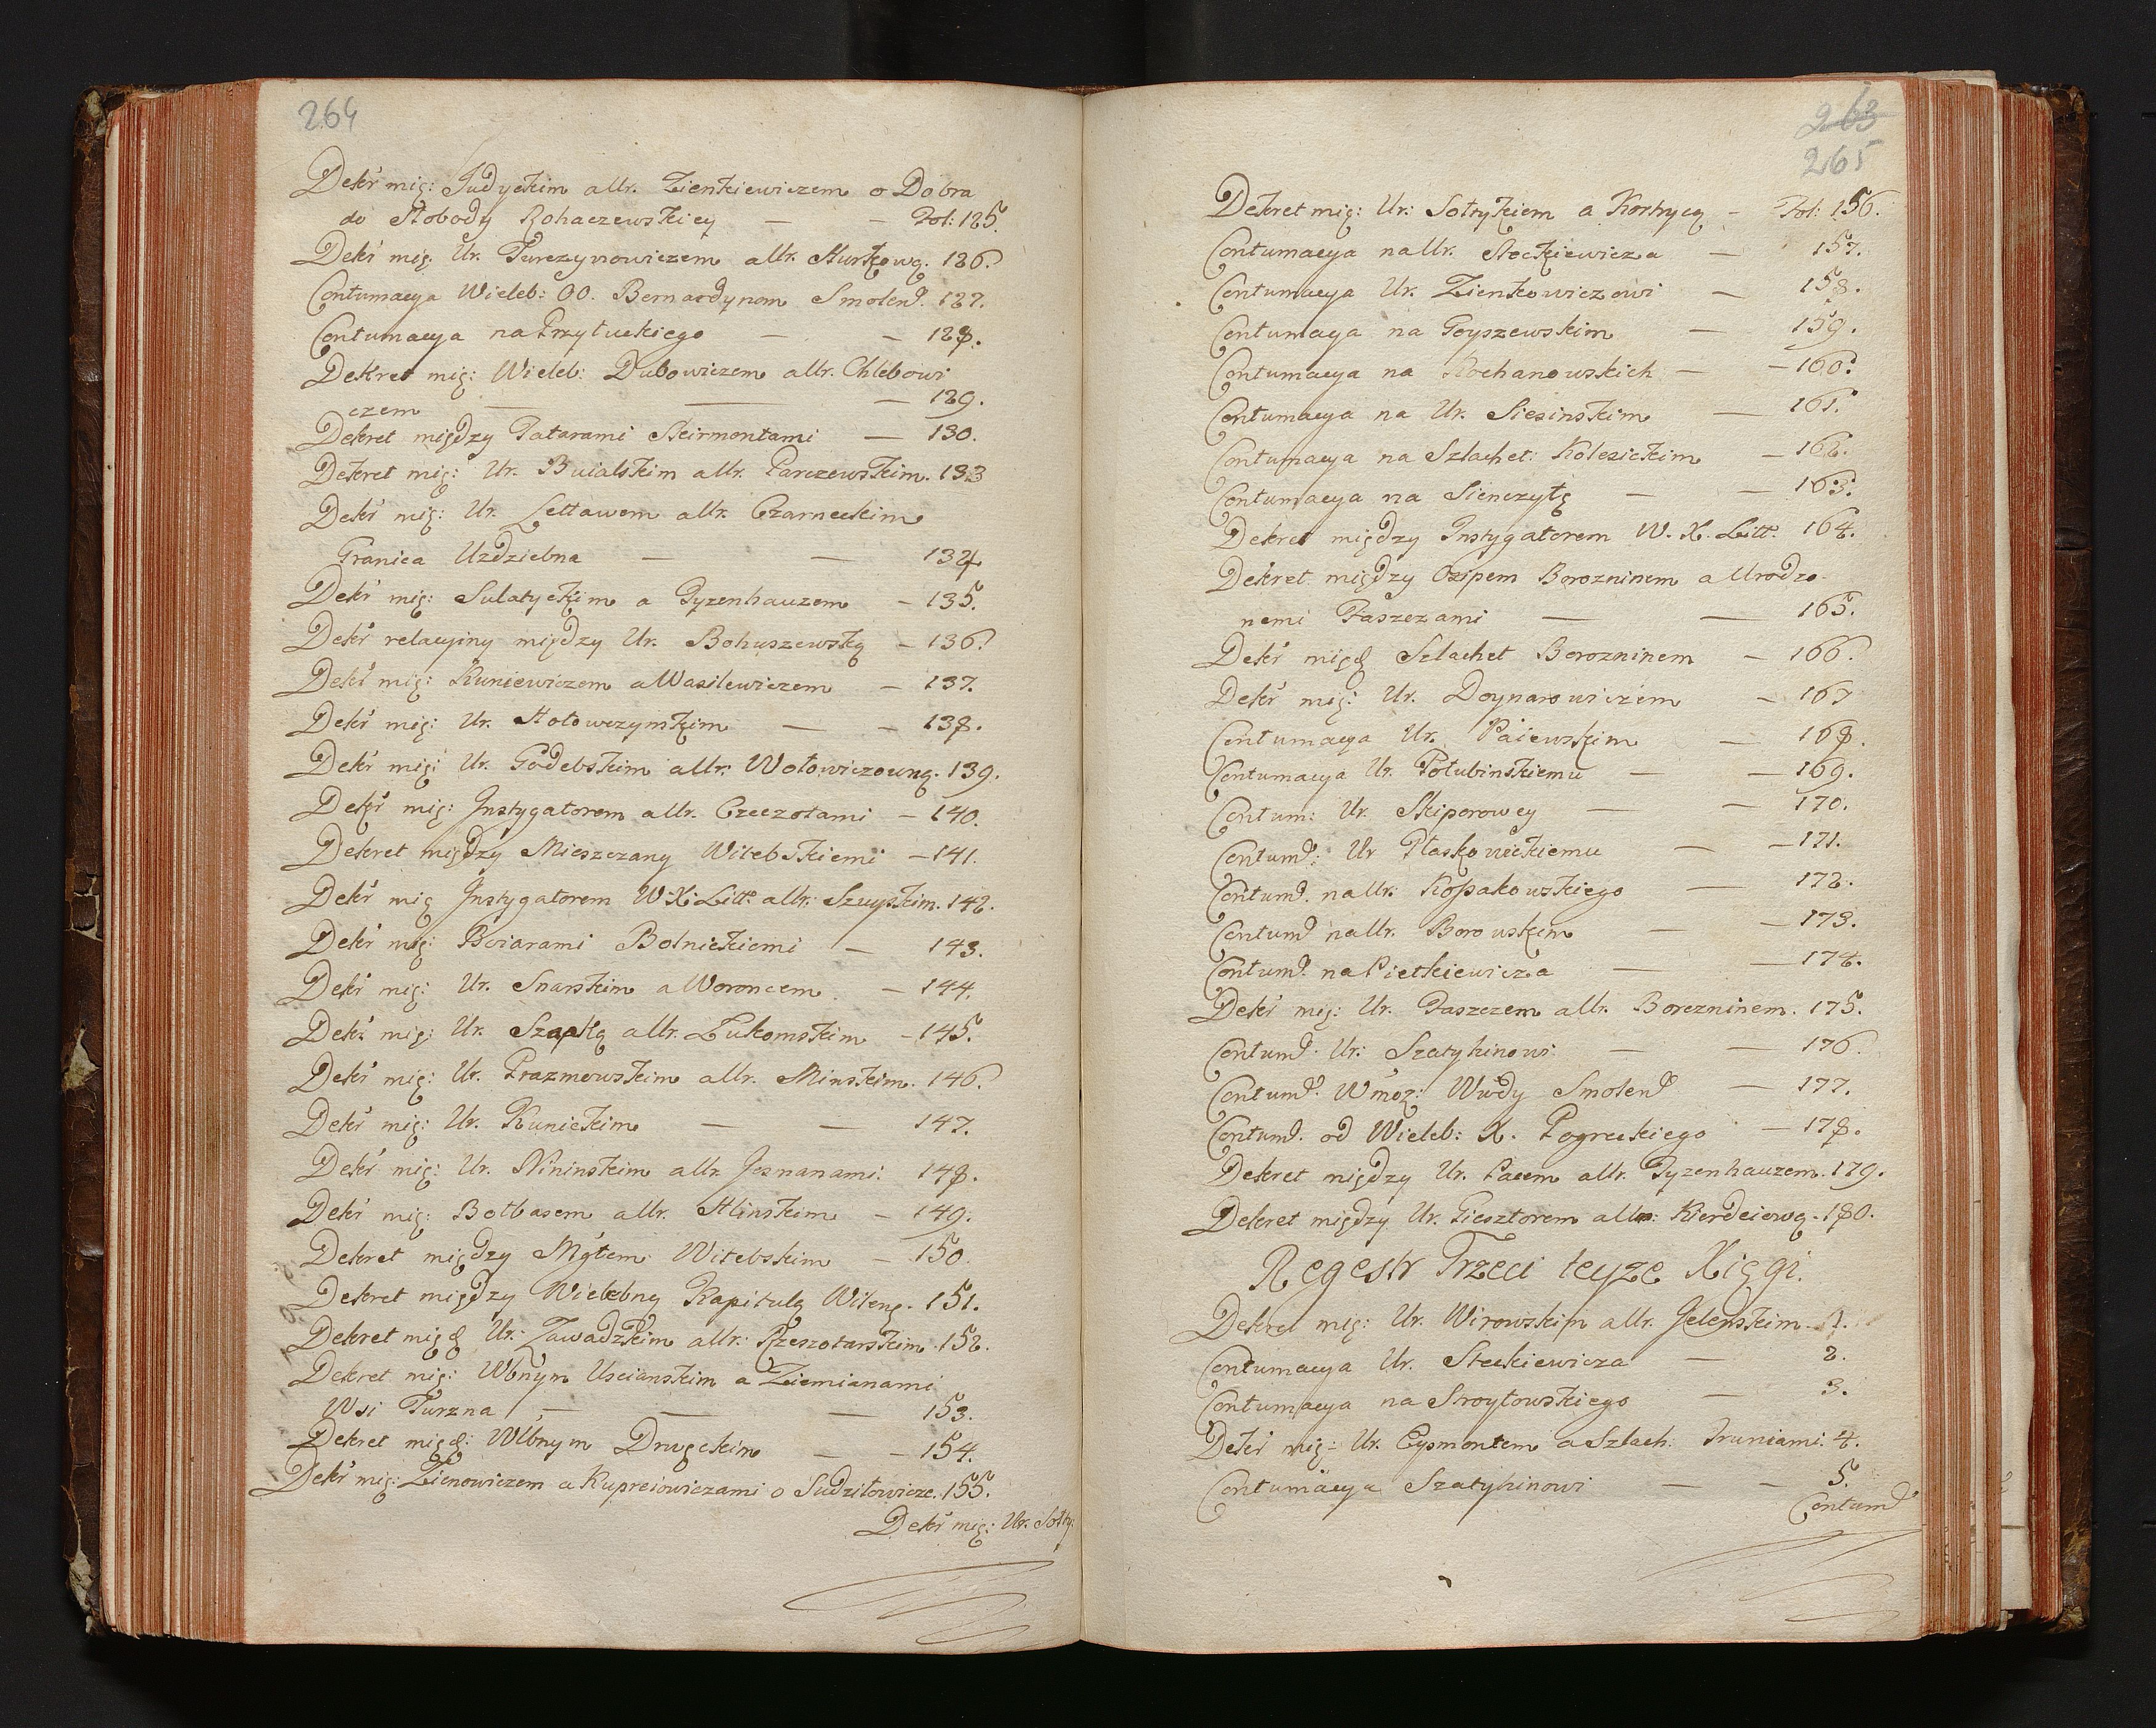 264
Dekr̃ mię: Judyckim a Ur. Zienkiewiczem o Dobra
do Słobody Rohaczewskiey — — Fol: 125.
Dekr̃ mię. Ur. Turczynowiczem a Ur. Hurkową. 126.
Contumacya Wieleb: OO. Bernardynom Smoleń. 127.
Contumacya na Przyłuckiego — — 128.
Dekret mię: Wieleb: Dubowiczem a Ur. Chlebowi
czem — — — 129.
Dekret między Tatarami Skirmontami — 130.
Dekret mię: Ur. Buialskim a Ur. Parczewskim. 133
Dekr̃ mię: Ur. Lettawem a Ur. Czarneckim
Granica Uzdziebna — — 134
Dekr̃ mię: Sulatyckim a Tyzenhauzem — 135.
Dekr̃ relacyiny między Ur. Bohuszewską — 136.
Dekr̃ mię: Kuniewiczem a Wasilewiczem — 137.
Dekr̃ mię: Ur. Hołowczymskim — — 138.
Dekr̃ mię: Ur. Godebskim a Ur. Wołowiczowną. 139.
Dekr̃ mię: Instygatorem a Ur. Czeczotami — 140.
Dekret między Mieszczany Witebskiemi — 141.
Dekr̃ mię Instygatorem W. X. Litt: a Ur. Szuyskim. 142.
Dekr̃ mię: Boiarami Bolnickiemi — 143.
Dekr̃ mię: Ur. Snarskim a Woroncem — 144.
Dekr̃ mię: Ur. Szapką a Ur. Łukomskim — 145.
Dekr̃ mię: Ur. Prazmowskim a Ur. Minskim. 146.
Dekr̃ mię: Ur. Kunickim — — 147.
Dekr̃ mię: Ur. Nininskim a Ur. Jesmanami. 148.
Dekr̃ mię: Bolbasem a Ur. Hlinskim — 149.
Dekret między Mg̃tem Witebskim — 150.
Dekret między Wielebną Kapitułą Wileng. 151.
Dekret międ Ur: Zawadzkim a Ur: Rzeszotarskim. 152.
Dekret mię: Wbnym Uscianskim a Ziemianami
Wsi Turzna — — — 153.
Dekret międ: Wlbnym Druckim — — 154.
Dekr̃ mię: Zienowiczem a Kupreiowiczami o Sudziłowicze. 155.
Dekr̃ mię: Ur. Sołty:
263
265
Dekret mię: Ur: Sołtykiem a Korsycą — Fol: 156.
Contumacya na Ur. Steckiewicza — 157.
Contumacya Ur. Zienkowiczowi — 158.
Contumacya na Goyszewskim — 159.
Contumacya na Kochanowskich — — 160.
Contumacya na Ur. Siesinskim — 161.
Contumacya na Szlachet: Kolesickim — 162.
Contumacya na Sienczyłę — — 163.
Dekret między Instygatorem W. X. Litt: 164.
Dekret między Osipem Borozninem a Urodzo-
nemi Paszczami — — 165.
Dekr̃ międ Szlachet Borozninem — 166.
Dekr̃ mię: Ur. Doynarowiczem — 167
Contumacya Ur. Paiewskim — 168.
Contumacya Ur. Połubinskiemu — — 169.
Contum: Ur. Skiporowey — — 170.
Contum: Ur Płaskowickiemu — — 171.
Contum. na Ur: Kossakowskiego — 172.
Contum na Ur. Borowskim — — 173.
Contum. na Pietkiewicza — — 174.
Dekr̃ mię: Ur. Paszczem a Ur. Borozninem. 175.
Contum. Ur: Szatyhinowi — — 176.
Contum. Wmoż: Wwdy Smoleń — 177.
Contum. od Wieleb: X. Pogreckiego — 178.
Dekret między Ur. Pacem a Ur. Tyzenhauzem. 179.
Dekret między Ur. Piesztorem a Ur: Kierdeiową. 180.
Regestr Trzeci teyze Xięgi.
Dekret mię: Ur. Wirowskim a Ur. Jelenskim. 1.
Contumacya Ur. Steckiewicza — 2.
Contumacya na Stroyłowskiego — 3.
Dekr̃ mię: Ur. Eysmontem a Szlach: Truniami. 4.
Contumacya Szatyhinowi — — 5.
Contum